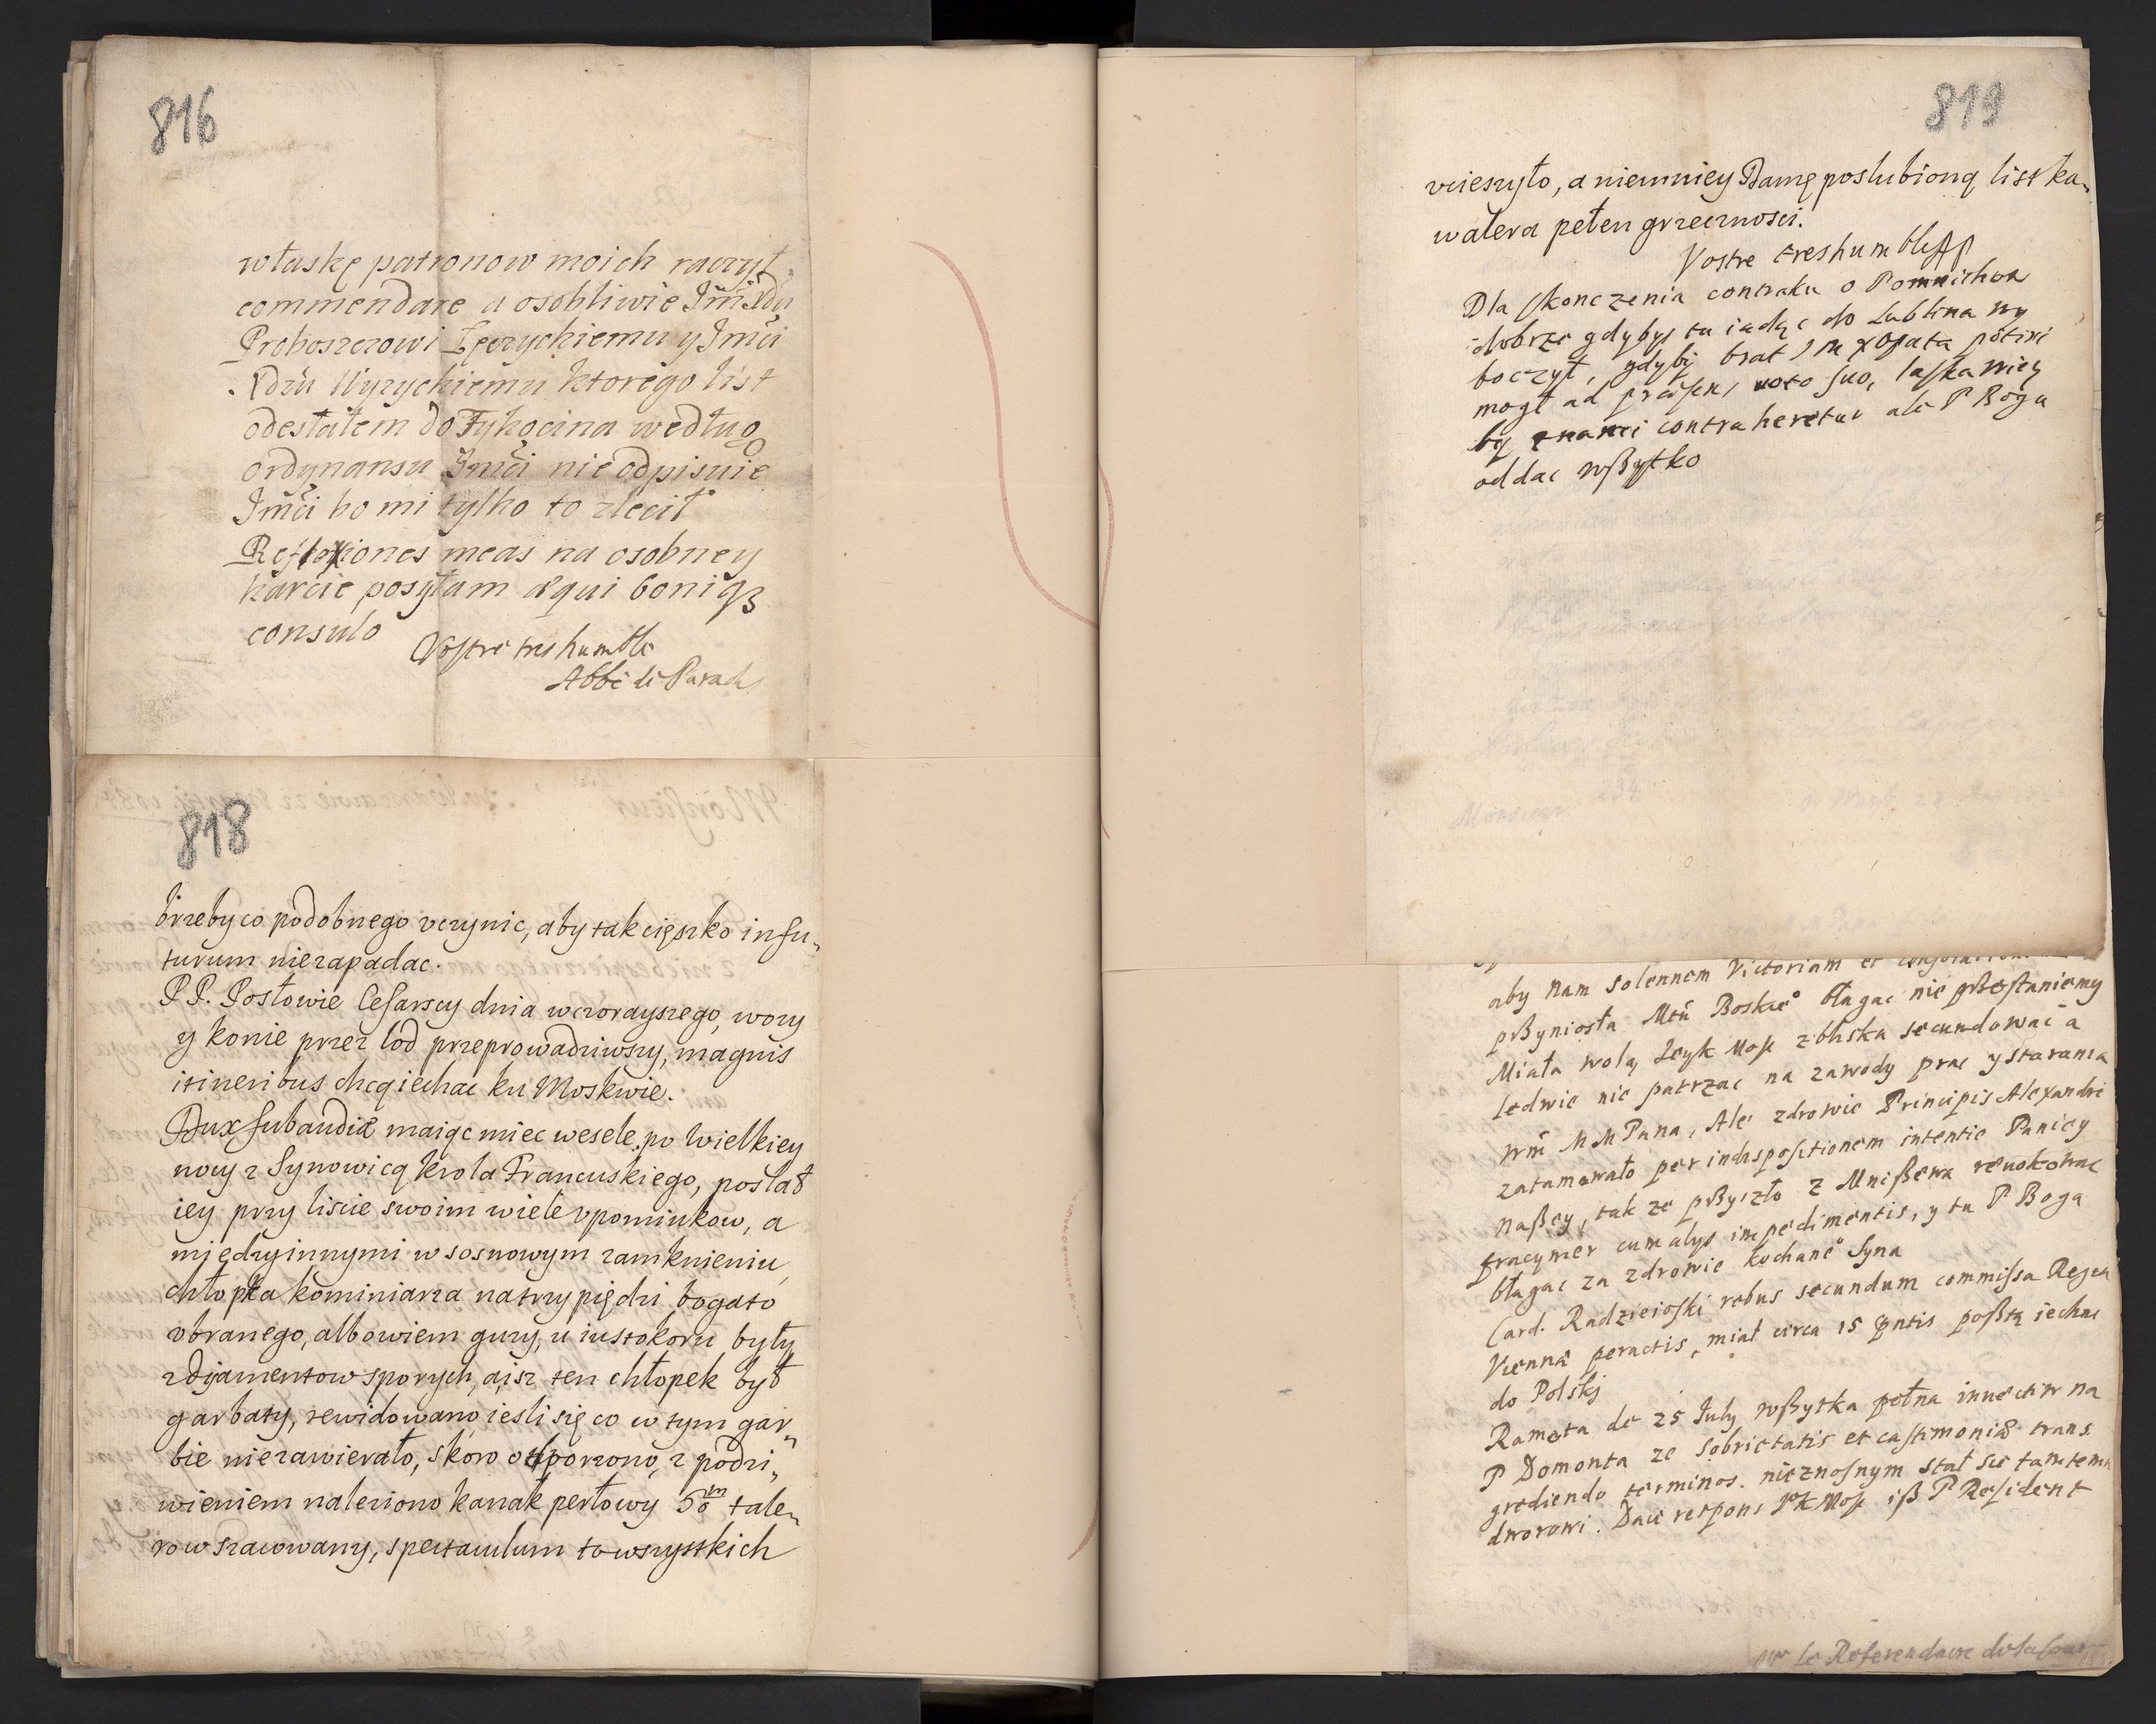 816
właskę patronow moich raczył
commendare a osobliwie Jm̃ Xdzu
Proboszczowi y Jmci
Xdzu Uyzyckiemu ktorego list
odesłałem do Tykocina według
ordynansu Jmci nie odpisuie
Jmci bo mi tylko to zlecił
Reflexiones meas na osobney
karcie posyłam æqui boniqз
consulo
Vostre tres humble
Abbé de Parad
818
brzeby co podobnego vczynic, aby tak cięszko in fu„
turum niezapadac.
P P. Posłowie Cesarscy dnia wczorayszego, wozy
y konie przez lod przeprowadziwszy, magnis
itineribus chcą iechac ku Moskwie.
Dux Subaudiæ maiąc miec wesele po Wielkiey
nocy z Synowicą Krola Francuskiego, posłał
iey przy liscie swoim wiele vpominkow, a
między innymi w sosnowym zamknieniu
chłopka kominiarza na trzy piędzi bogato
vbranego, albowiem guzy, u iustokoru były
z dyjamentow sporych, a isz ten chłopek był
garbaty, rewidowano, iesli się co w tym gar„
bie niezawierało, skoro odporzono, z podzi„
wieniem naleziono kanak perłowy 50 m tale„
row szacowany, spectaculum to wszystkich
819
vcieszyło, a niemniey Damę poslubioną list ka„
walera pełen grzecznosci.
Vostre treshumble
Dla skonczenia contraktu o Pomnichwa
dobrze gdybys tu iadąc do Lublina wy
boczył, gdyby brat Jm XOpata
mogł ad voto suo, laskawiey
by znami contraheretur ale P Bogu
oddac wßytko
aby nam solennem Victoriam et
pßyniosła Mtũ Boskie° błagac nie pßestaniemy
Miała wolą Jeyk Mosc z bliska secundować a
ledwie nie patrzac na zawody prac y starania
wm̃ M M Pana, Ale zdrowie Principis Alexandri
zatamowało per indispositionem intentie Paniey
naßey, tak ze pßyszło z Mnißewa reuokowac
cum alys impedimentis, y tu P Boga
błagac za zdrowie kochane° Syna
Card. Radzieioski rebus secundum commissa Regia
Viennæ peractis, miał circa 15 pntis poßtą iechac
do Polskj
Ramota de 25 July wßytka pełna inuectiw na
P Domonta ze sobrietatis et castimoniæ trans
grediendo terminos. nieznosnym stał sie tamtemu
dworowi. Daie respons JeK Mosc iß P Resident
Mr le Referendaire de la Cour